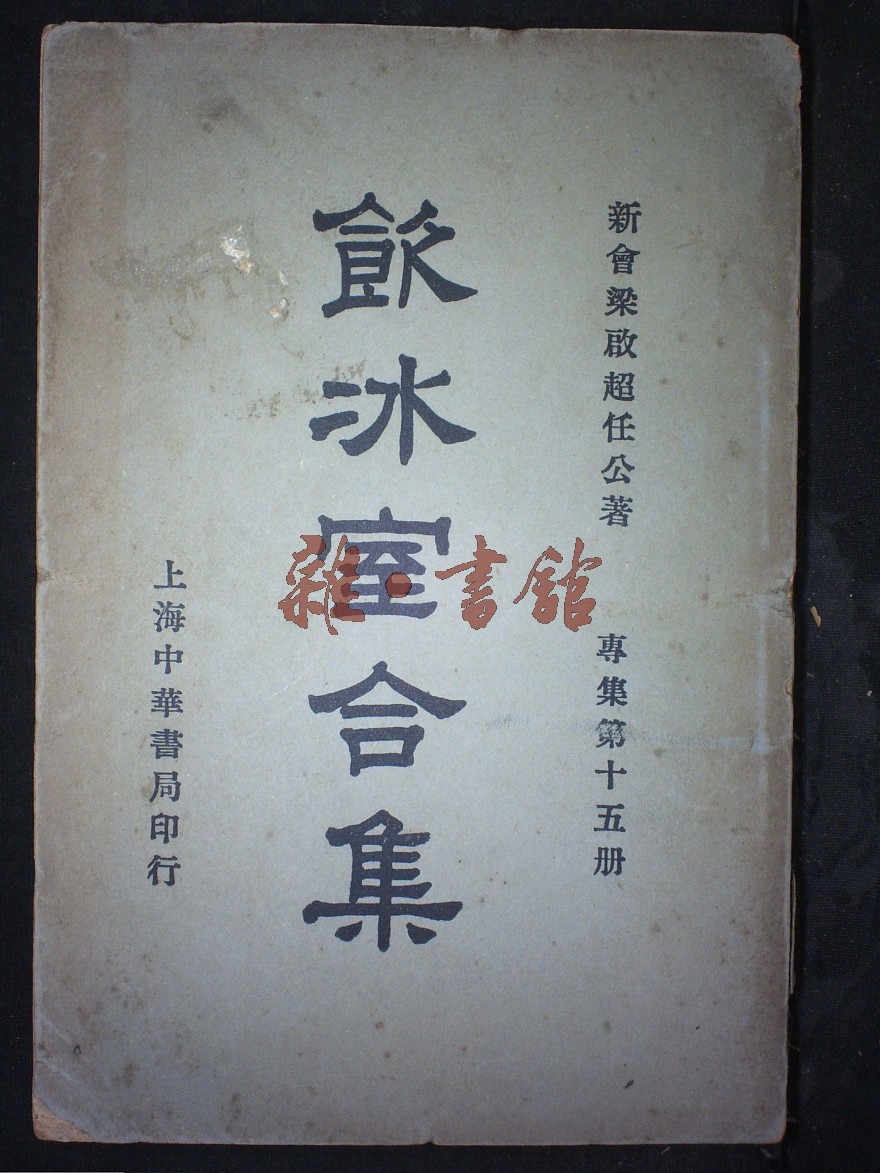 新會梁啟超任公著　專集第十五册
飲冰室合集
上海中華書局印行
雜·書館